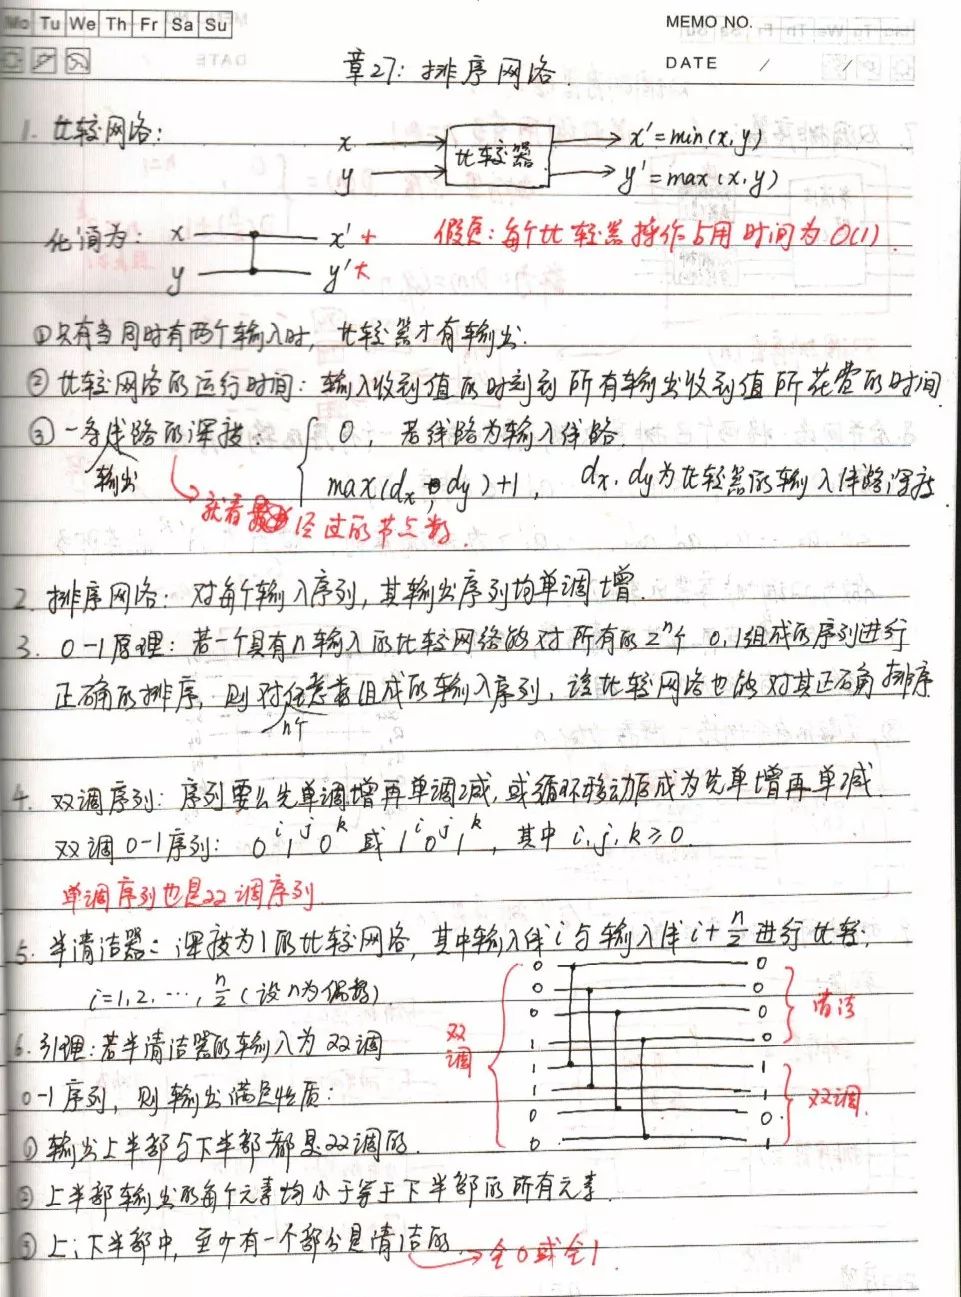 Mo Tu We Th Fr Sa Su
MEMO NO.
DATE / /
章27: 排序网络.
1. 比较网络:
x 比较器 x'=min(x,y)
y y'=max(x,y)
化简为: x x' 小
y y' 大
假定:每个比较器操作占用时间为O(1).
①只有当同时有两个输入时, 比较器才有输出.
②比较网络的运行时间: 输入收到值的时刻到所有输出收到值所花费的时间
③一条线路的深度: 0, 若线路为输入线路,
输出 max(dx, dy)+1, dx, dy为比较器的输入线路深度
就看经过的节点数.
2. 排序网络: 对每个输入序列, 其输出序列均单调增.
3. 0-1原理: 若一个具有n输入的比较网络能对所有的2^n个 0,1组成的序列进行
正确的排序, 则对任意数组成的输入序列, 该比较网络也能对其正确排序
n个
4. 双调序列: 序列要么先单调增再单调减, 或循环移动后成为先单增再单减
双调0-1序列: 0^i 1^j 0^k 或 1^i 0^j 1^k, 其中 i, j, k ≥ 0.
单调序列也是双调序列.
5. 半清洁器: 深度为1的比较网络, 其中输入线 i 与输入线 i+n/2 进行比较,
i=1, 2, ···, n/2 (设n为偶数).
6. 引理: 若半清洁器的输入为双调
0-1序列, 则输出满足性质:
①输出上半部与下半部都是双调的.
②上半部输出的每个元素均小于等于下半部的所有元素.
③上、下半部中, 至少有一个部分是清洁的.
全0或全1.
双调
0 0
0 0
0 0
1 0
1 1
1 1
0 0
0 1
清洁
双调.